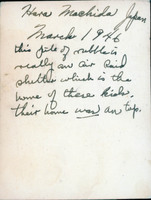 Hara Machida Japan
March 1946
this pile of rubble is
really an air raid
shelter which is the
home of these kids.
their home was on top.